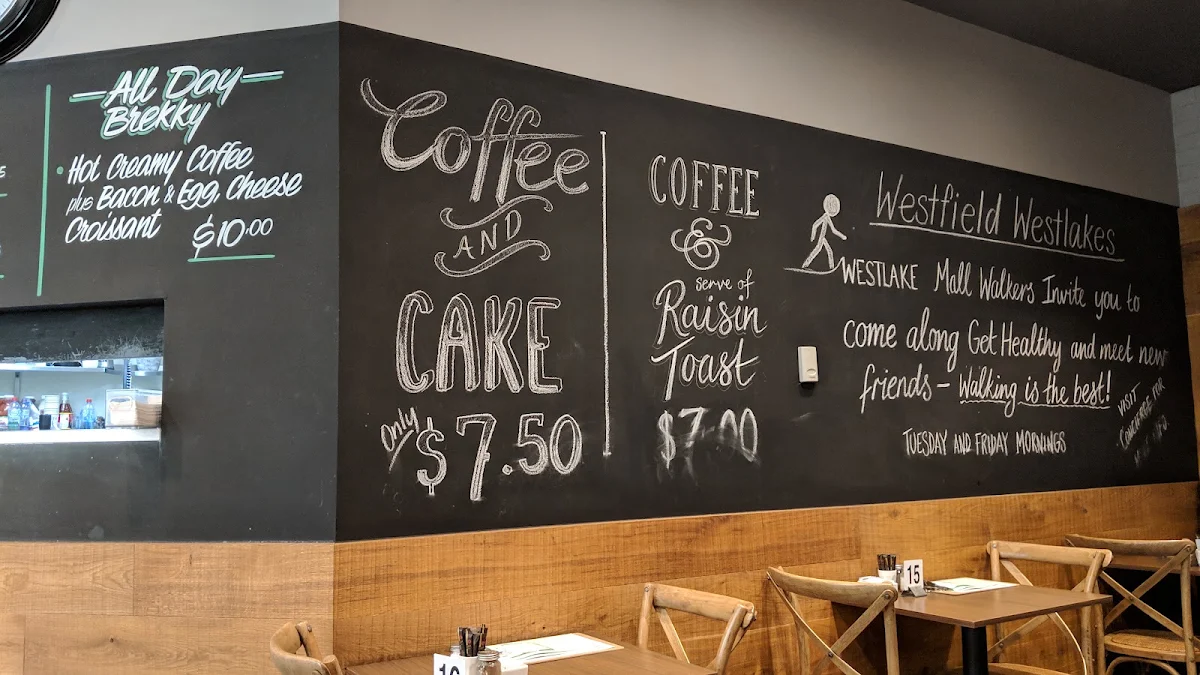 All Day
Brekky
Hot Creamy Coffee
plus Bacon & Egg, Cheese
Croissant
$10.00
Coffee
AND
CAKE
Only
$7.50
COFFEE
&
serve of
Raisin
Toast
$7.00
Westfield Westlakes
WESTLAKE Mall Walkers Invite you to
come along Get Healthy and meet new
friends - Walking is the best!
TUESDAY AND FRIDAY MORNINGS
VISIT
CONCIERGE FOR
15